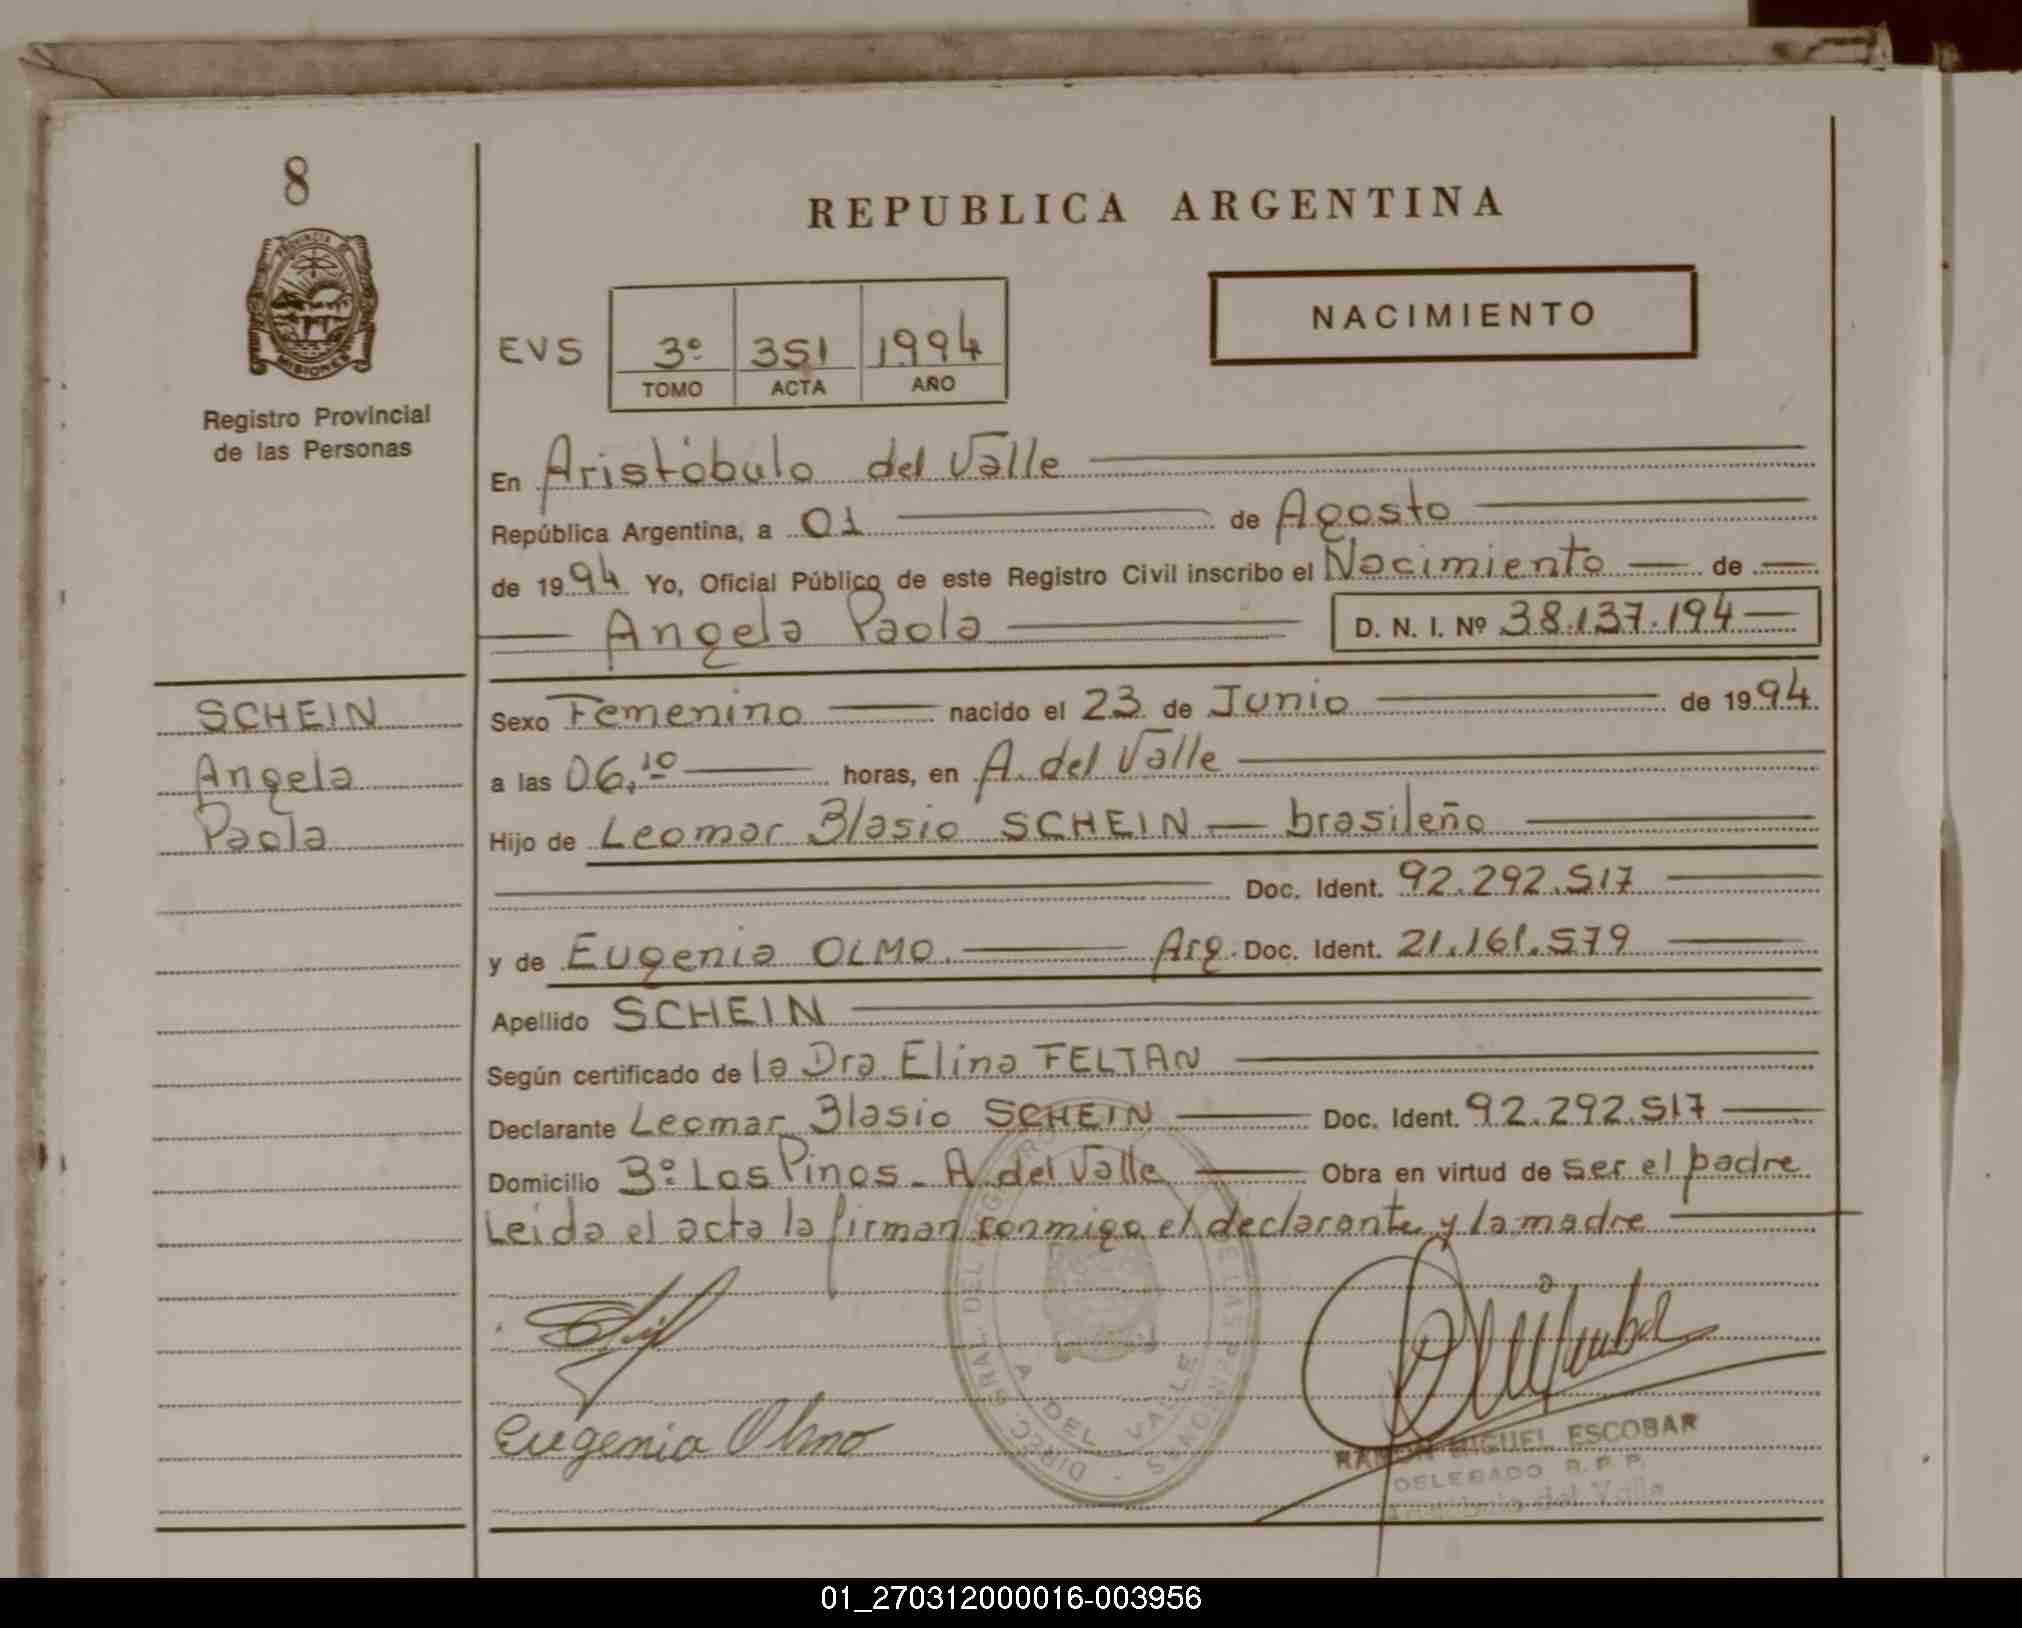 8
PROVINCIA DE
MISIONES
Registro Provincial
de las Personas
REPUBLICA ARGENTINA
NACIMIENTO
EVS 3º 351 1994
TOMO ACTA AÑO
En Aristóbulo del Valle
República Argentina, a 01 de Agosto
de 1994 Yo, Oficial Público de este Registro Civil inscribo el Nacimiento de
Angela Paola D. N. I. Nº 38.137.194
SCHEIN
Angela
Paola
Sexo Femenino nacido el 23 de Junio de 1994.
a las 06,10 horas, en A. del Valle
Hijo de Leomar Blasio SCHEIN - brasileño
Doc. Ident. 92.292.517
y de Eugenia OLMO. Arg. Doc. Ident. 21.161.579
Apellido SCHEIN
Según certificado de la Dra Elina FELTAN
Declarante Leomar Blasio SCHEIN Doc. Ident. 92.292.517
Domicilio 3º Los Pinos - A. del Valle Obra en virtud de ser el padre
Leida el acta la firman conmigo el declarante y la madre
Eugenia Olmo
A. DEL VALLE
RAMON MIGUEL ESCOBAR
DELEGADO R.P.P.
Aristóbulo del Valle
01_270312000016-003956